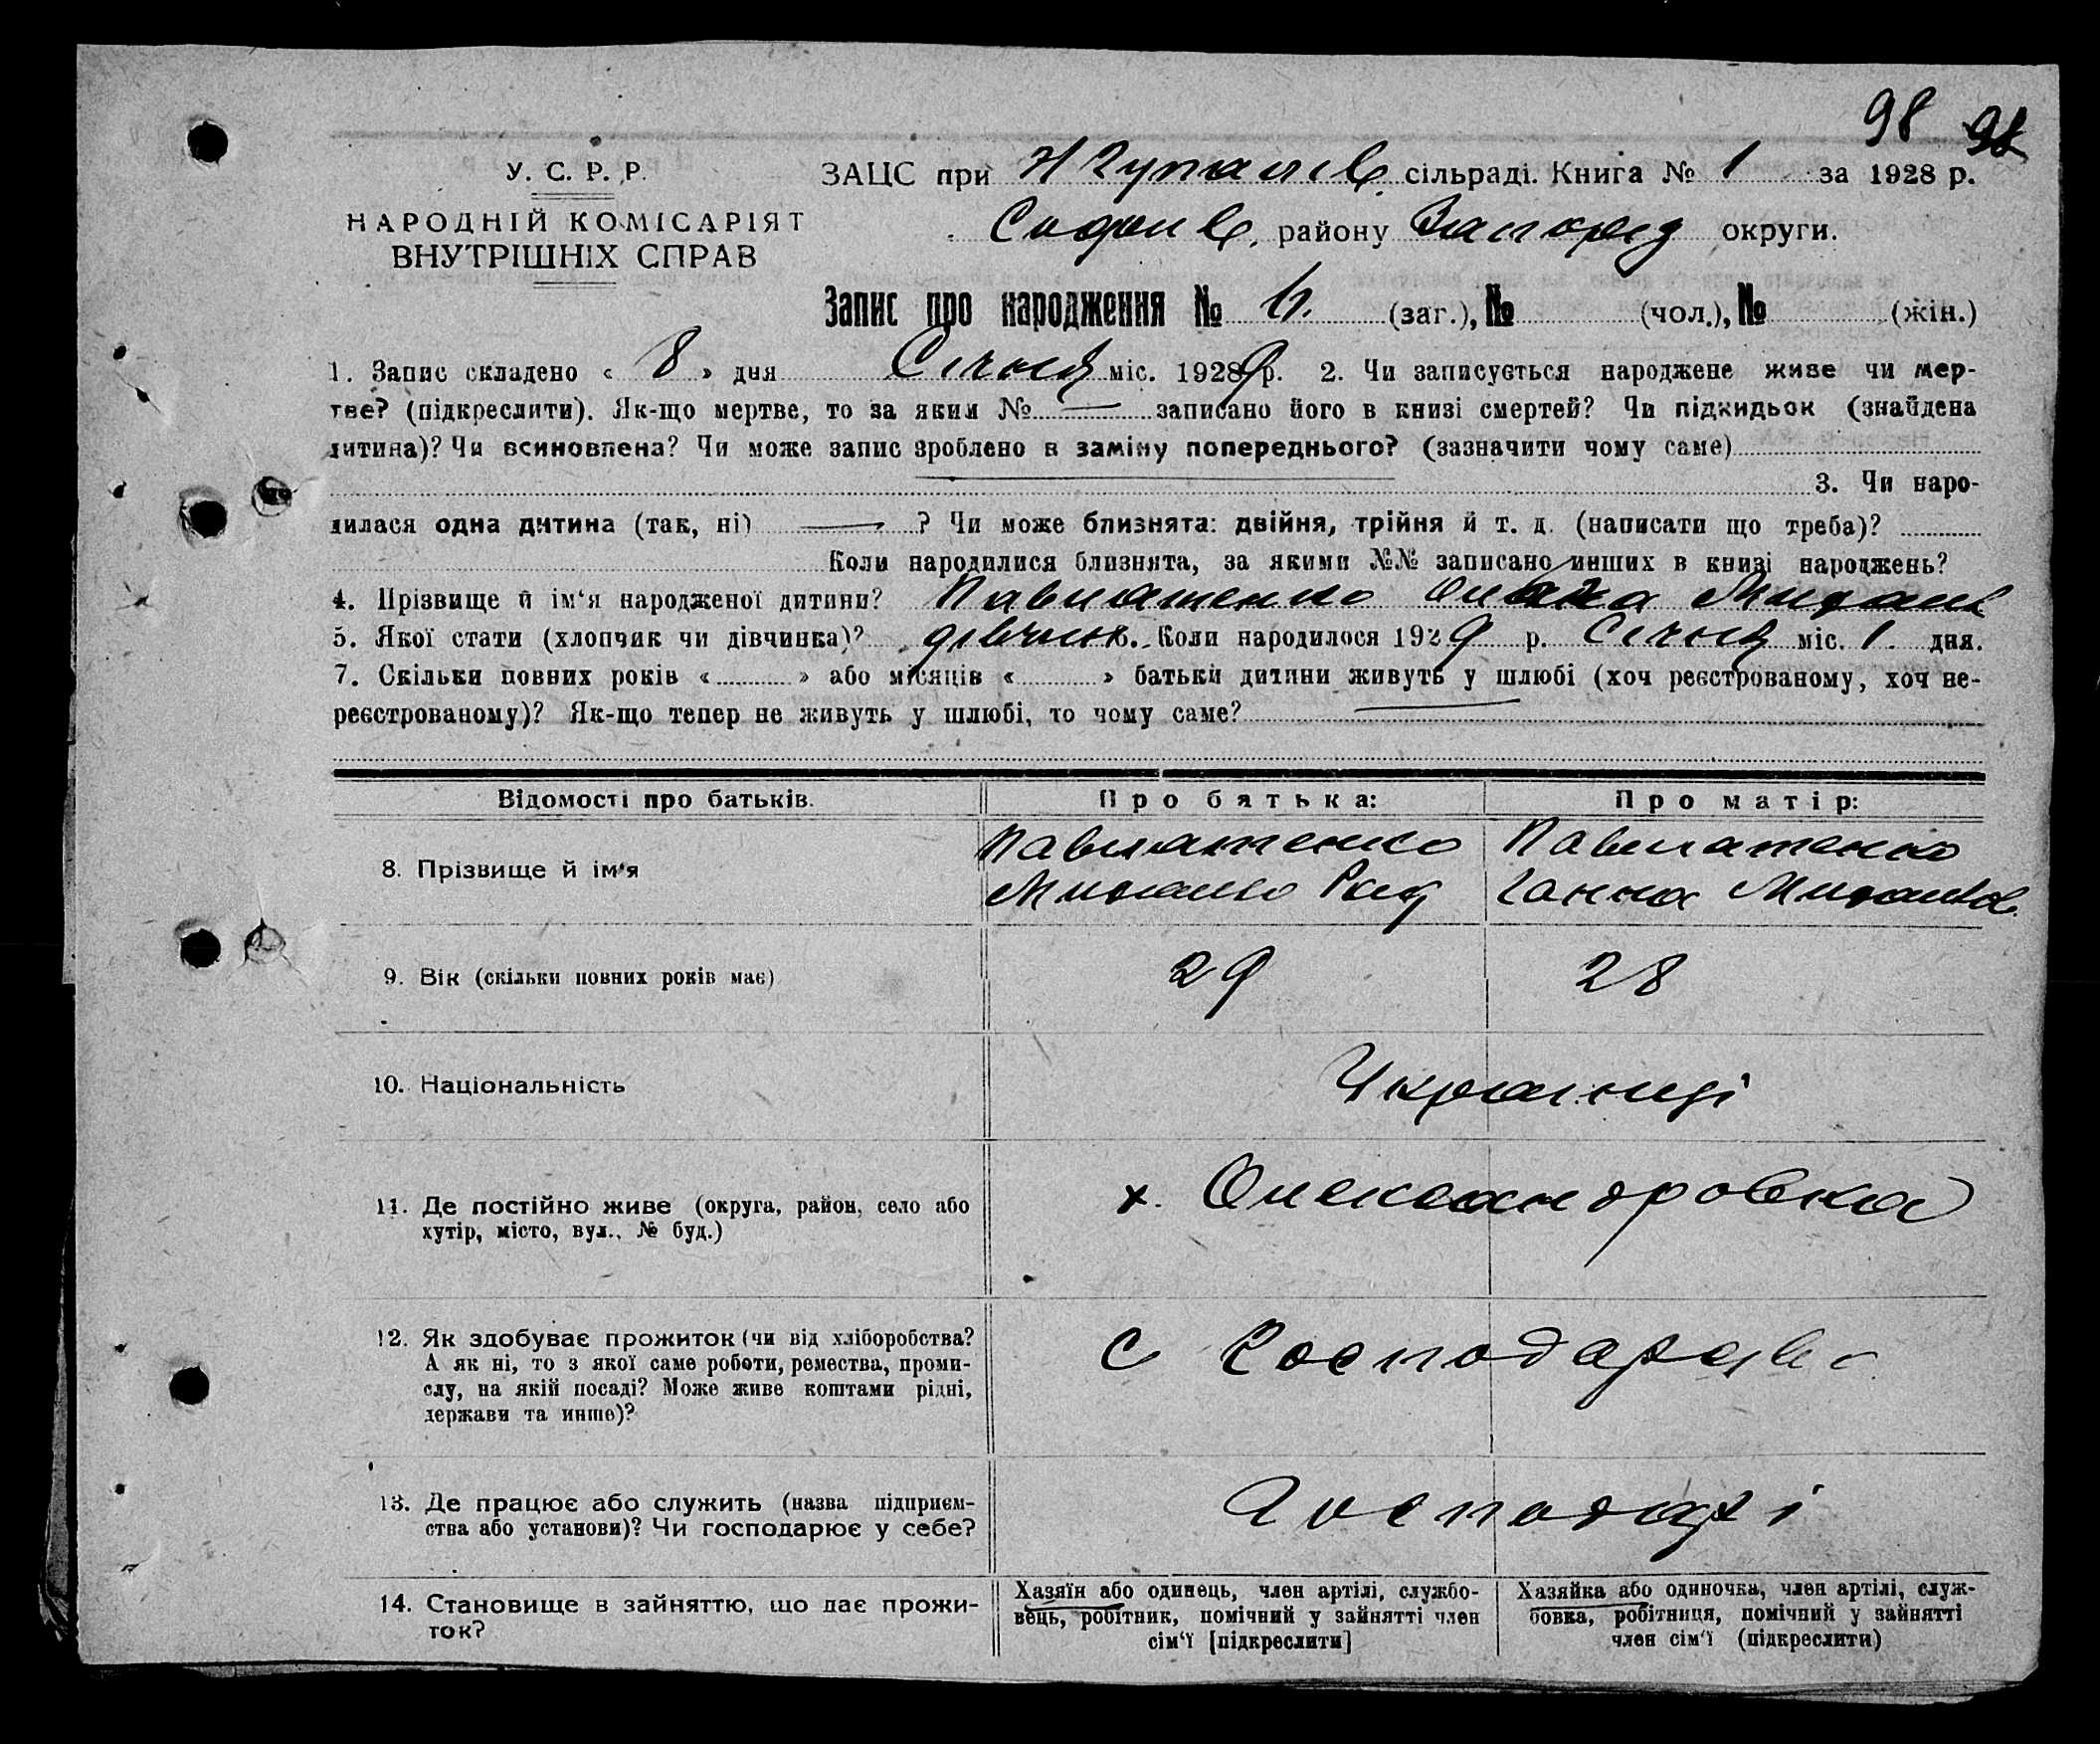 98 98
У. С. Р. Р.
НАРОДНІЙ КОМІСАРІЯТ
ВНУТРІШНІХ СПРАВ
ЗАЦС при сільраді. Книга № 1 за 1928 р.
Софіїв. району Запоріз округи.
Запис про народження № 6. (заг.), № (чол.), № (жін.)
1. Запис складено « 8 » дня Січня міс. 1929 р. 2. Чи записується народжене живе чи мер-
тве? (підкреслити). Як-що мертве, то за яким № — записано його в книзі смертей? Чи підкидьок (знайдена
дитина)? Чи всиновлена? Чи може запис зроблено в заміну попереднього? (зазначити чому саме)
3. Чи наро-
дилася одна дитина (так, ні) — ? Чи може близнята: двійня, трійня й т. д. (написати що треба)?
Коли народилися близнята, за якими №№ записано инших в книзі народжень?
4. Прізвище й ім‘я народженої дитини? Павлатенко
5. Якої стати (хлопчик чи дівчинка)? дівчинк. Коли народилося 1929 р. Січня міс. 1 дня.
7. Скільки повних років « » або місяців « » батьки дитини живуть у шлюбі (хоч реєстрованому, хоч не-
реєстрованому)? Як-що тепер не живуть у шлюбі, то чому саме? —
Відомості про батьків. Про батька: Про матір:
8. Прізвище й ім‘я Павлатенко Павлатенко
Михайло Ганна Михайлов.
9. Вік (скільки повних років має) 29 28
10. Національність Українці
11. Де постійно живе (округа, район, село або х. Олександровка
хутір, місто, вул., № буд.)
12. Як здобуває прожиток (чи від хліборобства? С Господарства
А як ні, то з якої саме роботи, ремества, проми-
слу, на якій посаді? Може живе коштами рідні,
держави та инше)?
13. Де працює або служить (назва підприєм- Господарі
ства або установи)? Чи господарює у себе?
14. Становище в зайняттю, що дає прожи-
ток?
Хазяїн або одинець, член артілі, службо-
вець, робітник, помічний у зайнятті член
сім‘ї [підкреслити]
Хазяйка або одиночка, член артілі, служ-
бовка, робітниця, помічний у зайнятті
член сім‘ї (підкреслити)